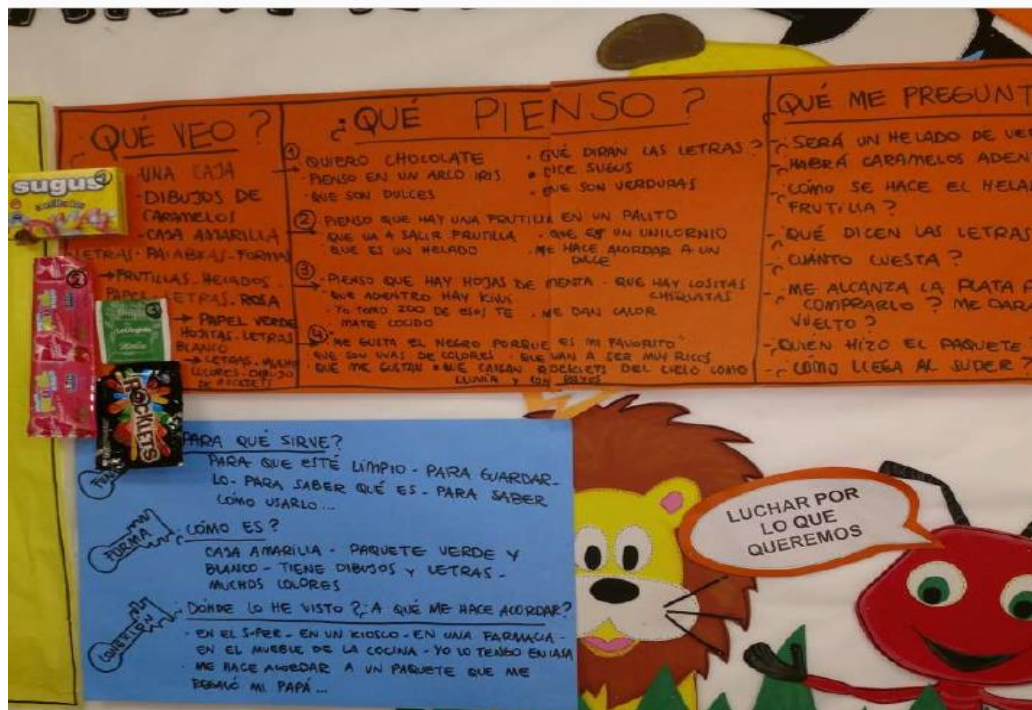 ¿QUÉ VEO?
UNA CAJA
-DIBUJOS DE
CARAMELOS
-CAJA AMARILLA
LETRAS-PALABRAS-FORMAS
→FRUTILLAS. HELADOS.
PAPEL LETRAS-ROSA
→PAPEL VERDE
HOJITAS-LETRAS
BLANCO
→LETRAS-MUCHOS
COLORES-DIBUJO
DE ROCKLETS
sugus
ROCKLETS
¿QUÉ PIENSO?
① QUIERO CHOCOLATE
·PIENSO EN UN ARCO IRIS
·QUE SON DULCES
·QUÉ DIRAN LAS LETRAS?
·DICE SUGUS
·QUE SON VERDURAS
② PIENSO QUE HAY UNA FRUTILLA EN UN PALITO
QUE VA A SALIR FRUTILLA · QUE ES UN UNILORNIO
·QUE ES UN HELADO ·ME HACE ACORDAR A UN
DULCE
③ ·PIENSO QUE HAY HOJAS DE MENTA - QUE HAY COSITAS
CHIQUITAS
·QUE ADENTRO HAY KIWI
·YO TOMO 200 DE ESOS TE ·ME DAN CALOR
MATE COCIDO
④ "ME GUSTA EL NEGRO PORQUE ES MI FAVORITO"
·QUE SON UVAS DE COLORES - QUE VAN A SER MUY RICOS
·QUE ME GUSTAN · QUE CAIGAN ROCKLETS DEL CIELO COMO
LLUVIA Y CON RAYOS
QUÉ ME PREGUNT
-¿SERÁ UN HELADO DE
-¿HABRÁ CARAMELOS ADEN
-¿CÓMO SE HACE EL HELA
FRUTILLA?
-¿QUÉ DICEN LAS LETRAS
-¿CUÁNTO CUESTA?
-¿ME ALCANZA LA PLATA
COMPRARLO? ME DARÁ
VUELTO?
-¿QUIÉN HIZO EL PAQUETE
-¿CÓMO LLEGA AL SUPER?
PARA QUÉ SIRVE?
PARA QUE ESTÉ LIMPIO - PARA GUARDAR-
LO - PARA SABER QUÉ ES - PARA SABER
CÓMO USARLO...
FORMA
¿CÓMO ES?
CAJA AMARILLA - PAQUETE VERDE Y
BLANCO - TIENE DIBUJOS Y LETRAS -
MUCHOS COLORES
CONEXIÓN
¿DÓNDE LO HE VISTO? ¿A QUÉ ME HACE ACORDAR?
·EN EL SUPER - EN UN KIOSCO - EN UNA FARMACIA -
EN EL MUEBLE DE LA COCINA - YO LO TENGO EN CASA
·ME HACE ACORDAR A UN PAQUETE QUE ME
REGALÓ MI PAPÁ...
LUCHAR POR
LO QUE
QUEREMOS